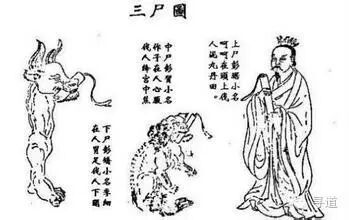 三尸圖
上尸彭琚小名
呵呵在頭上伐
人泥丸丹田。
中尸彭質小名
作子在人心腹
伐人絳宮中焦
下尸彭矯小名季細
在人胃足伐人下關
寻道